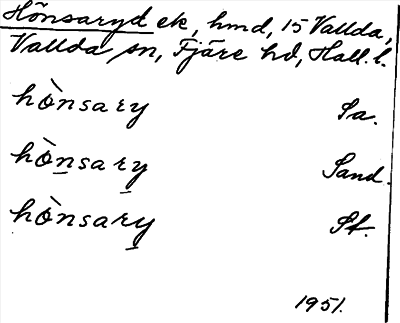 Hönsaryd ek, hmd, 15 Vallda,
Vallda sn, Fjäre hd, Hall. l.
hò̀nsary Sa.
hò̀nsary Sand.
hò̀nsary St.
1951.